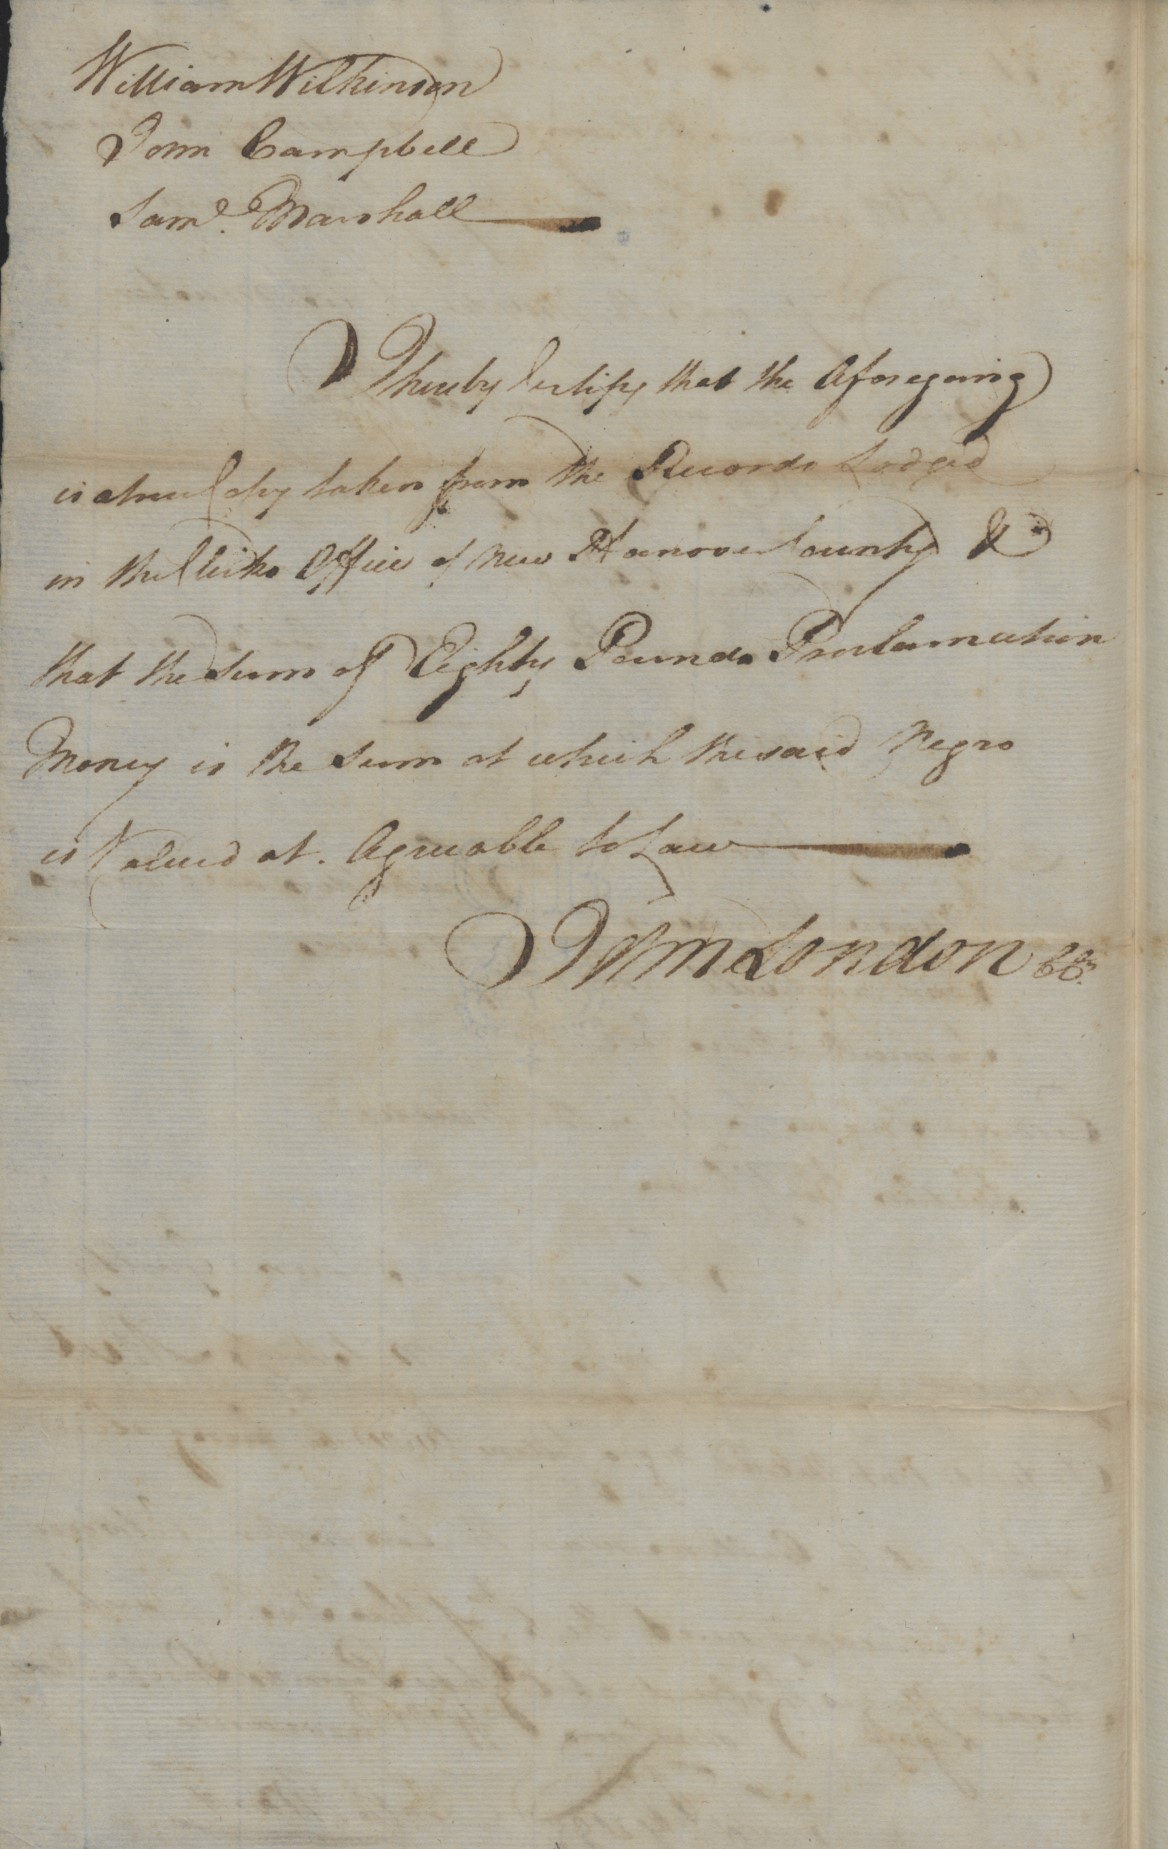 William Wilkinson
John Campbell
Sam.l Marshall
I hereby Certify that the Aforegoing
is a true Copy taken from the Records Lodged
in the Clerks Office of New Hanover County &
that the Sum of Eighty Pounds Proclamation
Money is the Sum at which the said Negro
is Valued at. Agreeable to Law
John London